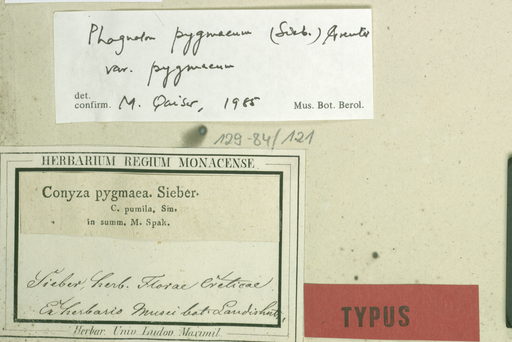 Phagnalon pygmaeum (Sieb.) Greuter
var. pygmaeum
det.
confirm. M. Qaiser, 1985 Mus. Bot. Berol.
129-84/121
HERBARIUM REGIUM MONACENSE
Conyza pygmaea. Sieber.
C. pumila. Sm.
in summ. M. Spak.
Sieber, herb. Florae Creticae
Ex herbario Musei bot. Landishut.
Herbar. Univ. Ludov. Maximil.
TYPUS